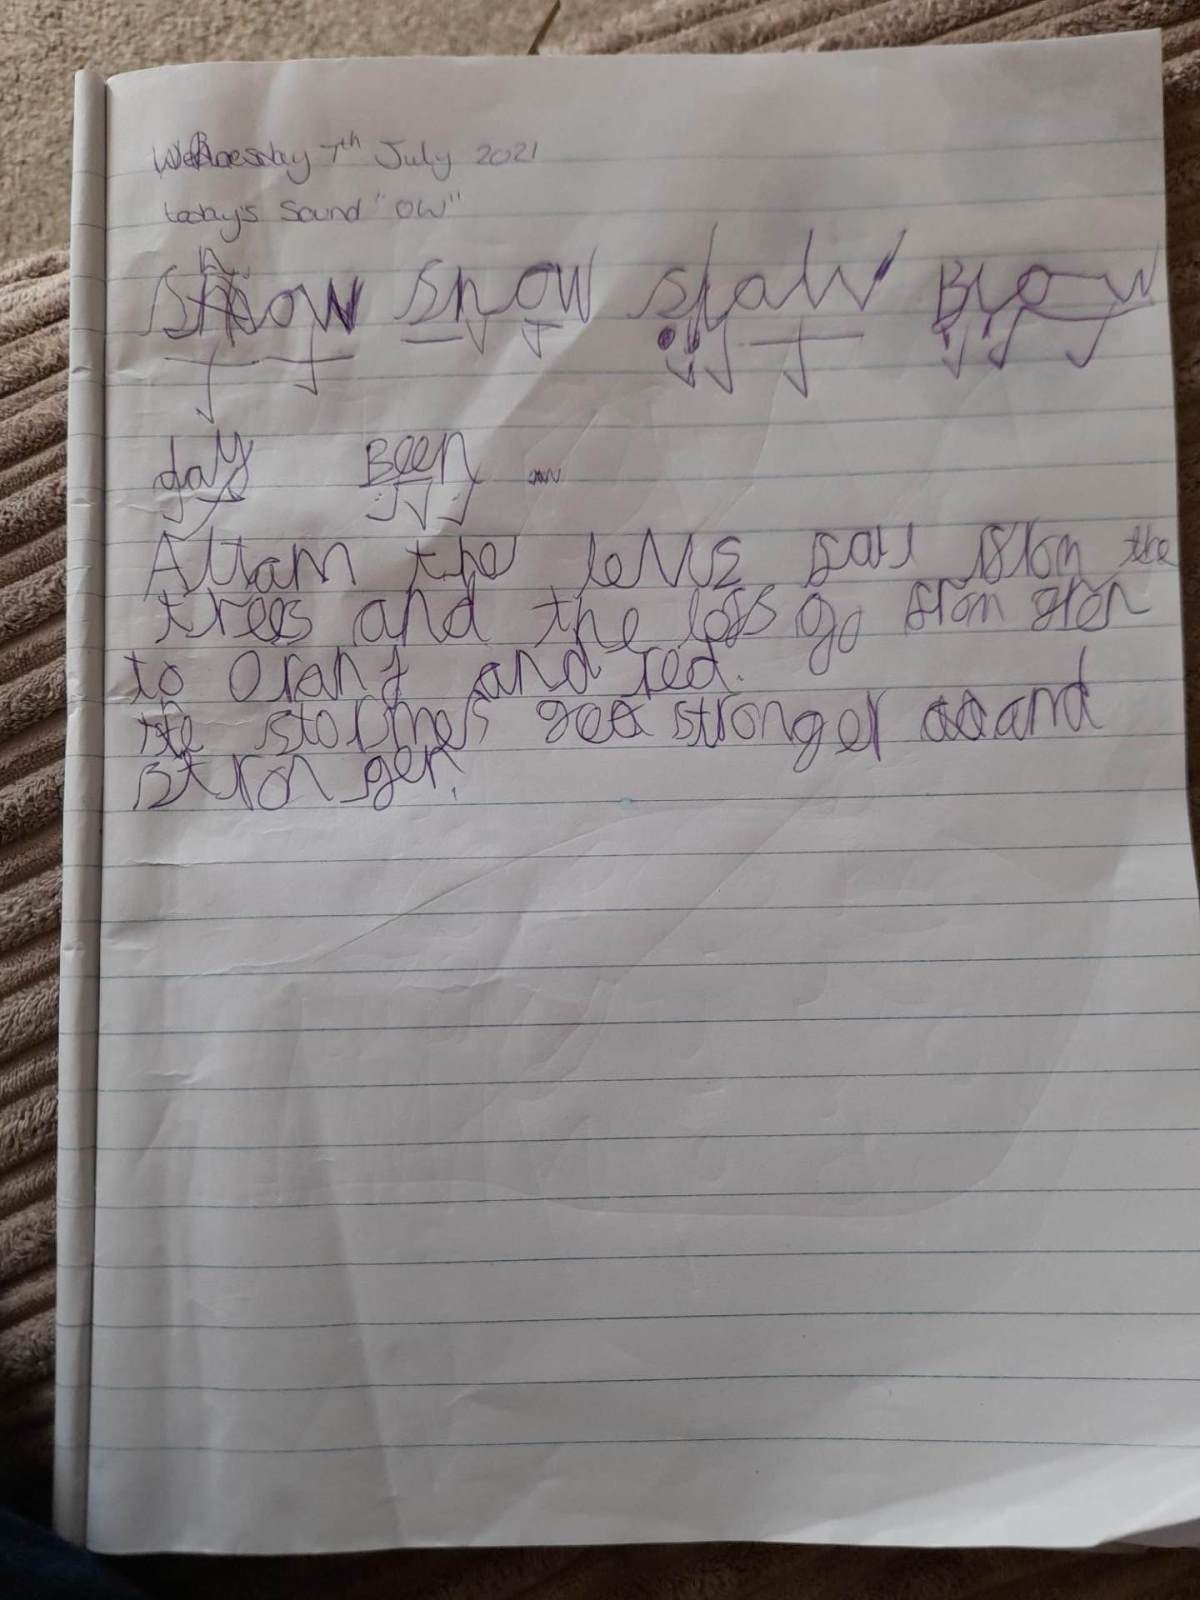 Wednesday 7th July 2021
today's Sound "OW"
Show Snow slow Blow
day Been
Attam the levs fall from the
trees and the lefs go from gren
to orang and red.
the stormes get stronger and
stronger.